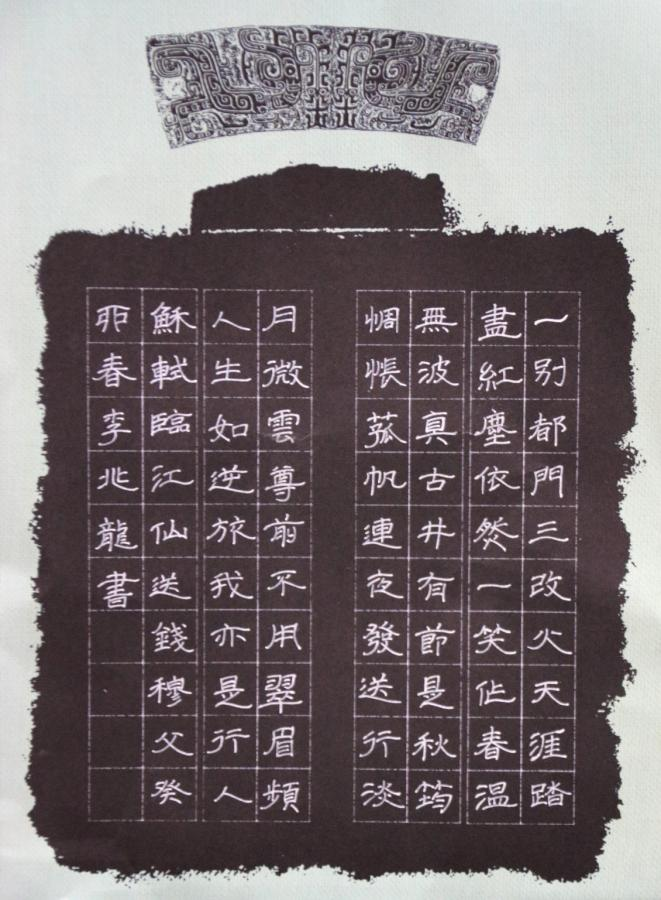 一别都門三改火天涯踏
盡紅塵依然一笑作春溫
無波真古井有節是秋筠
惆悵菰帆連夜發送行淡
月微雲尊前不用翠眉頻
人生如逆旅我亦是行人
穌軾臨江仙送錢穆父癸
卯春李兆龍書